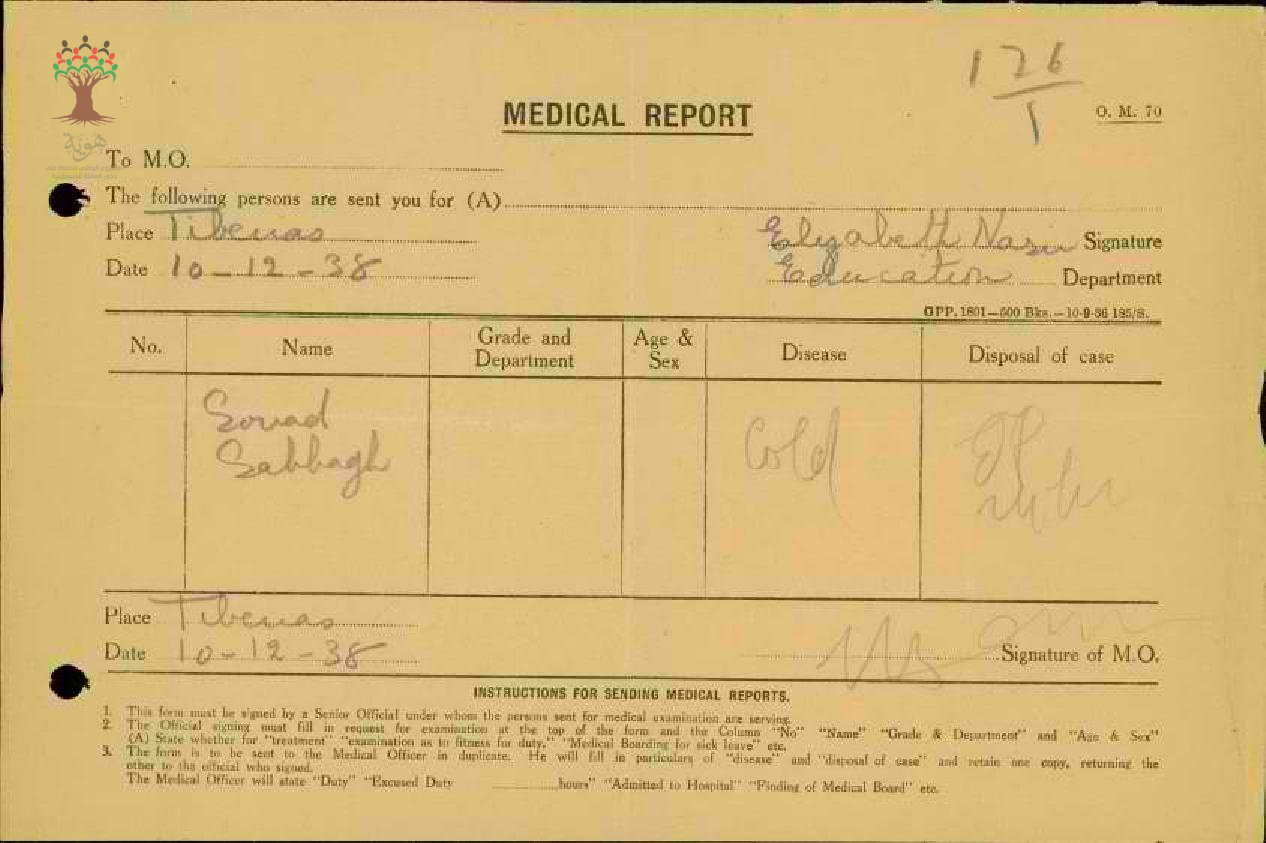 هوية
126
1
MEDICAL REPORT
O. M. 70
To M.O.
The following persons are sent you for (A)
Place Tiberias
Elizabeth Nasir Signature
Date 10-12-38
Education Department
GPP. 1801—600 Bks.—10-9-36 185/S.
No. Name Grade and Department Age & Sex Disease Disposal of case
Souad
Sabbagh
Cold
Place Tiberias
Date 10-12-38
Signature of M.O.
INSTRUCTIONS FOR SENDING MEDICAL REPORTS.
1. This form must be signed by a Senior Official under whom the persons sent for medical examination are serving.
2. The Official signing must fill in request for examination at the top of the form and the Column "No" "Name" "Grade & Department" and "Age & Sex"
(A) State whether for "treatment" "examination as to fitness for duty," "Medical Boarding for sick leave" etc.
3. The form is to be sent to the Medical Officer in duplicate. He will fill in particulars of "disease" and "disposal of case" and retain one copy, returning the
other to the official who signed.
The Medical Officer will state "Duty" "Excused Duty ............hours" "Admitted to Hospital" "Finding of Medical Board" etc.